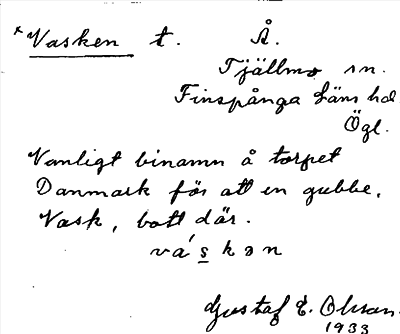 *Vasken t. Å.
Tjällmo sn.
Finspånga läns hd.
Ögl.
Vanligt binamn å torpet
Danmark för att en gubbe,
Vask, bott där.
vá s̲kən
Gustaf E. Olsson.
1933